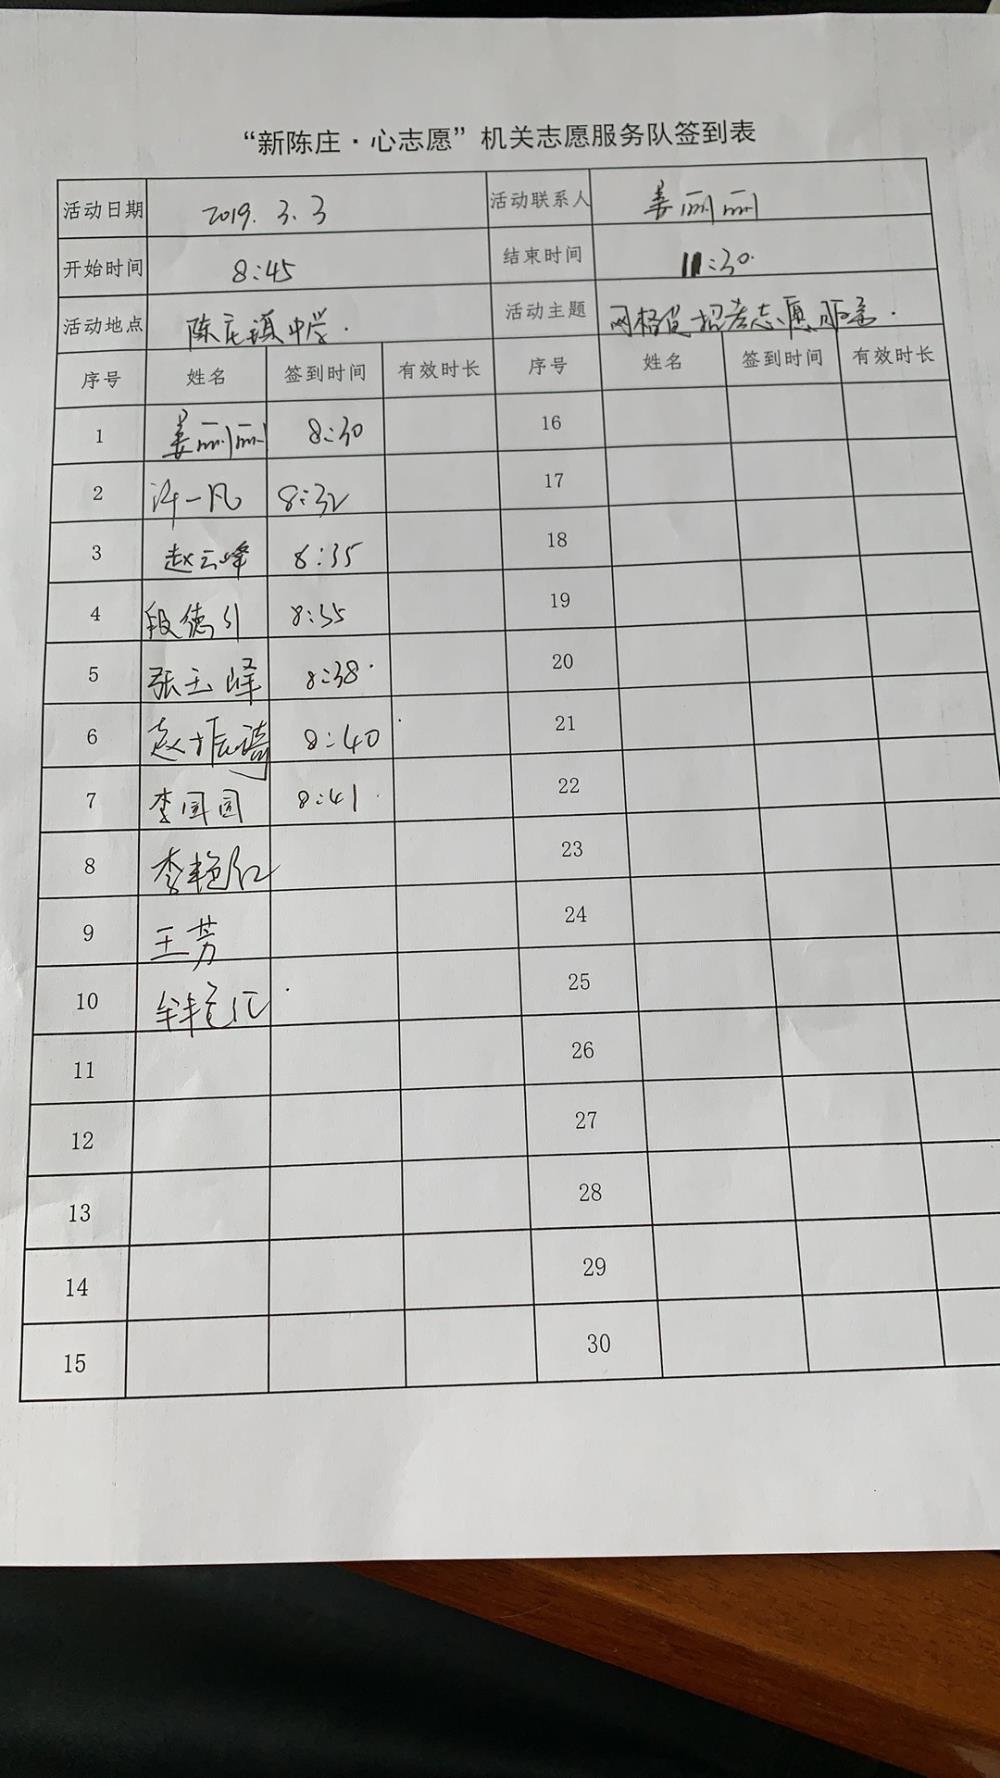 “新陈庄·心志愿”机关志愿服务队签到表
活动日期 2019.3.3 活动联系人 姜丽丽
开始时间 8:45 结束时间 11:30
活动地点 陈庄镇中学. 活动主题 网格员招考志愿服务.
序号 姓名 签到时间 有效时长 序号 姓名 签到时间 有效时长
1 姜丽丽 8:30 16
2 许一凡 8:32 17
3 赵云峰 8:35 18
4 段德 8:35 19
5 张玉峰 8:38 20
6 赵振 8:40 21
7 李国国 8:41 22
8 李艳红 23
9 王芳 24
10 25
11 26
12 27
13 28
14 29
15 30